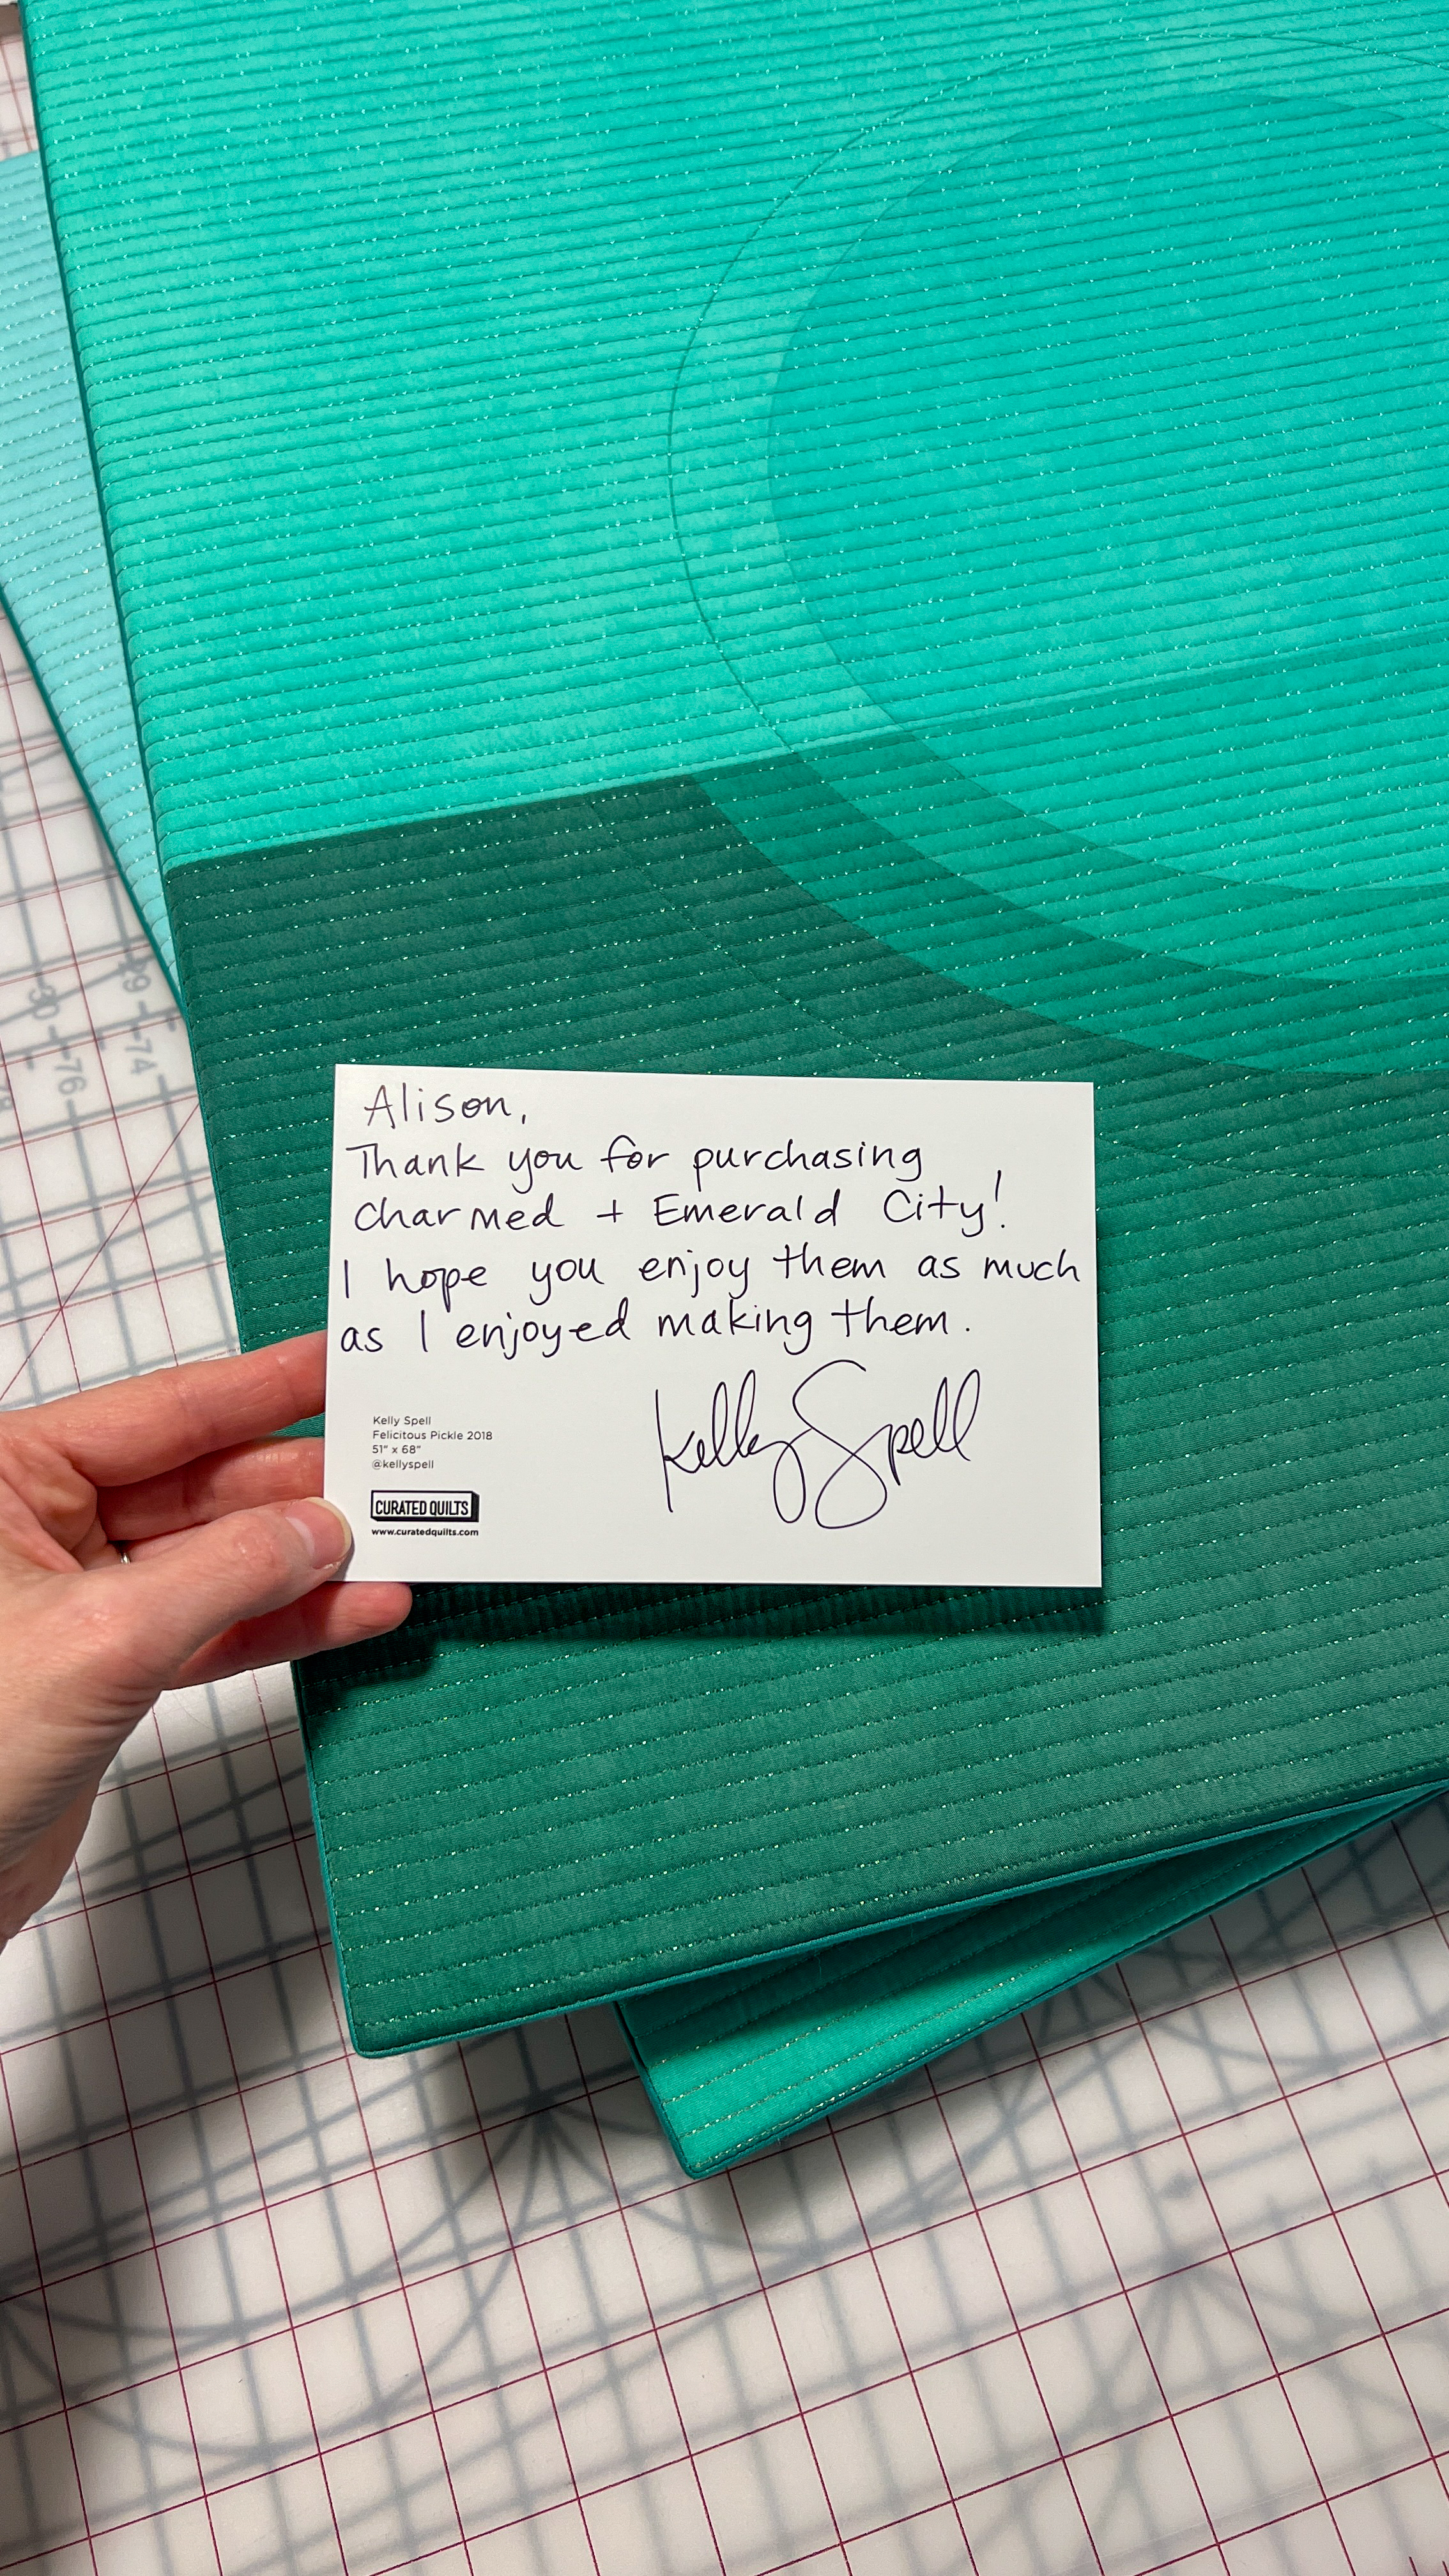 Alison,
Thank you for purchasing
Charmed + Emerald City!
I hope you enjoy them as much
as I enjoyed making them.
Kelly Spell
Kelly Spell
Felicitous Pickle 2018
51" x 68"
@kellyspell
CURATED QUILTS
www.curatedquilts.com
29 74
30 76